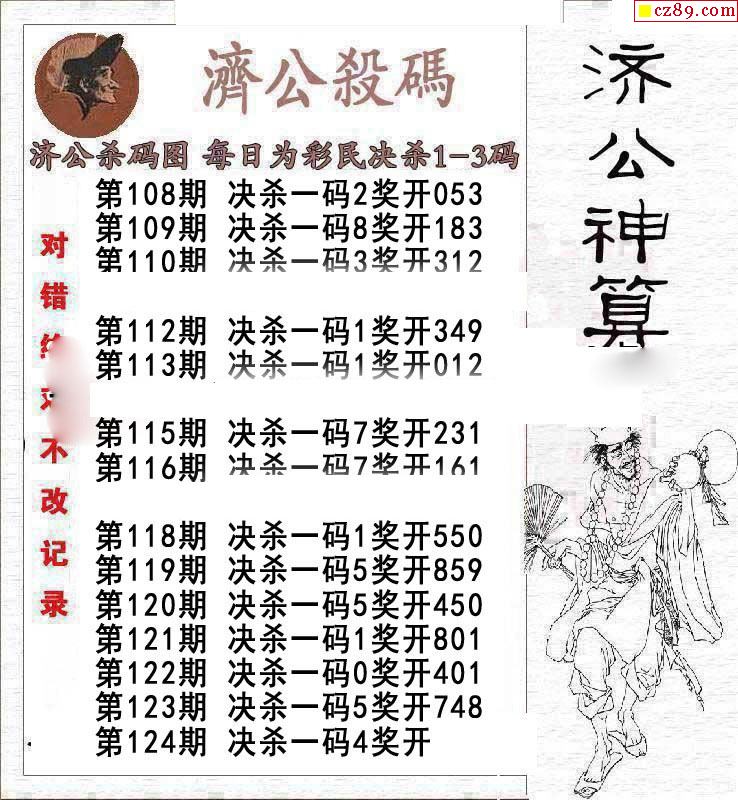 cz89.com
濟公殺碼
济公杀码图 每日为彩民决杀1-3码
第108期 决杀一码2奖开053
第109期 决杀一码8奖开183
第110期 决杀一码3奖开312
第112期 决杀一码1奖开349
第113期 决杀一码1奖开012
第115期 决杀一码7奖开231
第116期 决杀一码7奖开161
第118期 决杀一码1奖开550
第119期 决杀一码5奖开859
第120期 决杀一码5奖开450
第121期 决杀一码1奖开801
第122期 决杀一码0奖开401
第123期 决杀一码5奖开748
第124期 决杀一码4奖开
对错不改记录
济公神算